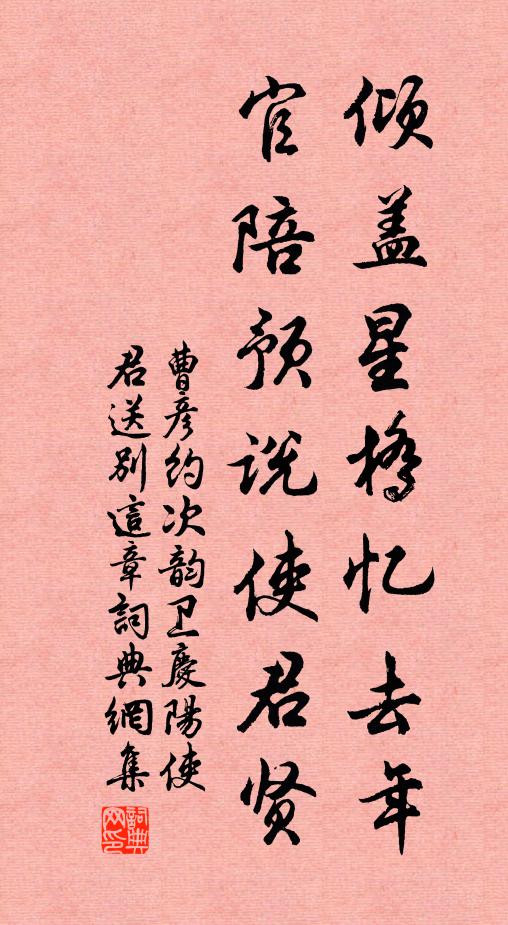 倾盖星桥忆去年
官陪预说使君贤
曹彦约次韵卫慶陽使
君送别這章詞典網集
詞典网印